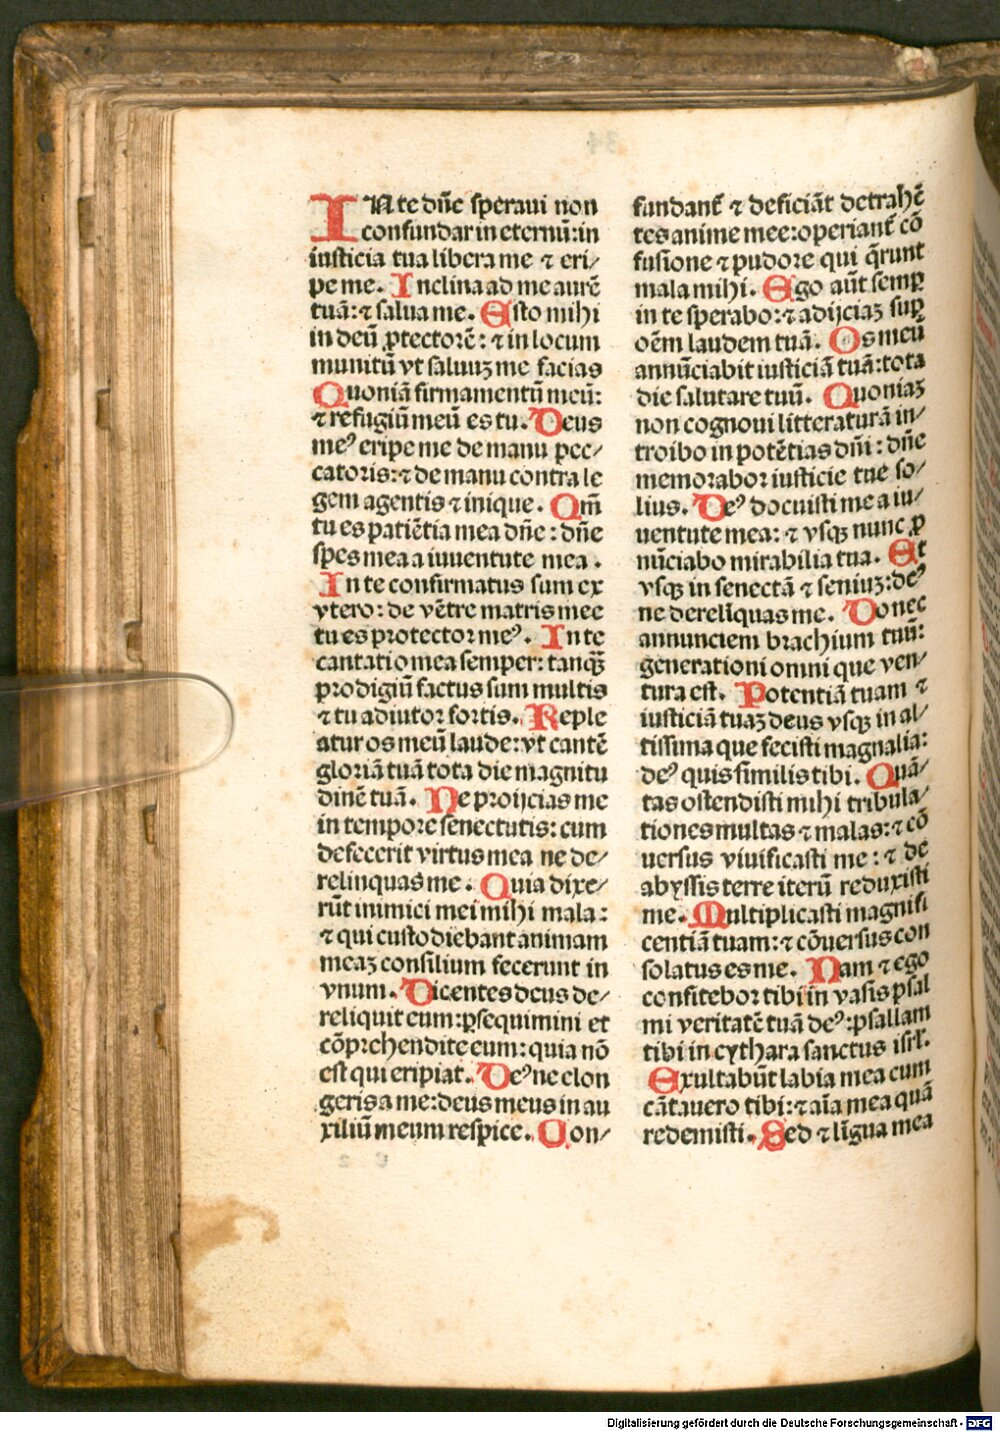 IN te dñe speraui non
confundar in eternũ: in
iusticia tua libera me ⁊ eri/
pe me. Inclina ad me aurē
tuā: ⁊ salua me. Esto mihi
in deũ ꝓtectorē: ⁊ in locum
munitũ vt saluuꝫ me facias
Quoniā firmamentũ meũ:
⁊ refugiũ meũ es tu. Deus
meꝰ eripe me de manu pec/
catoris: ⁊ de manu contra le
gem agentis ⁊ inique. Qm̄
tu es patiētia mea dñe: dñe
spes mea a iuuentute mea.
In te confirmatus sum ex
vtero: de vētre matris mee
tu es protector meꝰ. In te
cantatio mea semper: tanqꝫ
prodigiũ factus sum multis
⁊ tu adiutor fortis. Reple
atur os meũ laude: vt cantē
gloriā tuā tota die magnitu
dinē tuā. Ne proijcias me
in tempore senectutis: cum
defecerit virtus mea ne de/
relinquas me. Quia dixe/
rũt inimici mei mihi mala:
⁊ qui custodiebant animam
meaꝫ consilium fecerunt in
vnum. Dicentes deus de/
reliquit eum: ꝑsequimini et
cōprehendite eum: quia nō
est qui eripiat. Deꝰ ne elon
geris a me: deus meus in au
xiliũ meum respice. Con/
fundant᷑ ⁊ deficiāt detrahē
tes anime mee: operiant᷑ cō
fusione ⁊ pudore qui q̄runt
mala mihi. Ego aũt semꝑ
in te sperabo: ⁊ adijciaꝫ suꝑ
oēm laudem tuā. Os meũ
annũciabit iusticiā tuā: tota
die salutare tuũ. Quoniaꝫ
non cognoui litteraturā in/
troibo in potētias dñi: dñe
memorabor iusticie tue so/
lius. Deꝰ docuisti me a iu/
uentute mea: ⁊ vsqꝫ nunc ꝓ
nũciabo mirabilia tua. Et
vsqꝫ in senectā ⁊ seniuꝫ: deꝰ
ne derelīquas me. Donec
annunciem brachium tuũ:
generationi omni que ven/
tura est. Potentiā tuam ⁊
iusticiā tuaꝫ deus vsqꝫ in al/
tissima que fecisti magnalia:
deꝰ quis similis tibi. Quā/
tas ostendisti mihi tribula/
tiones multas ⁊ malas: ⁊ cō
uersus viuificasti me: ⁊ de
abyssis terre iterũ reduxisti
me. Multiplicasti magnifi
centiā tuam: ⁊ cōuersus con
solatus es me. Nam ⁊ ego
confitebor tibi in vasis psal
mi veritatē tuā deꝰ: psallam
tibi in cythara sanctus isrl.
Exultabũt labia mea cum
cātauero tibi: ⁊ aīa mea quā
redemisti. Sed ⁊ līgua mea
Digitalisierung gefördert durch die Deutsche Forschungsgemeinschaft - DFG